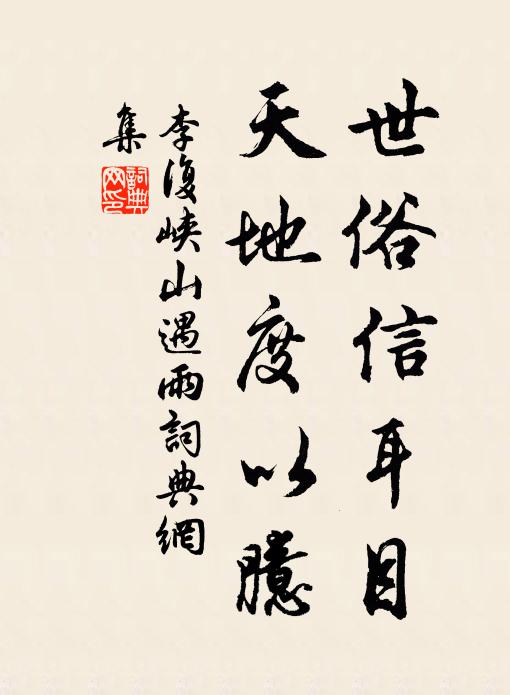 世俗信耳目
天地度以臆
李復峽山遇雨詞典網
集
詞典
网印